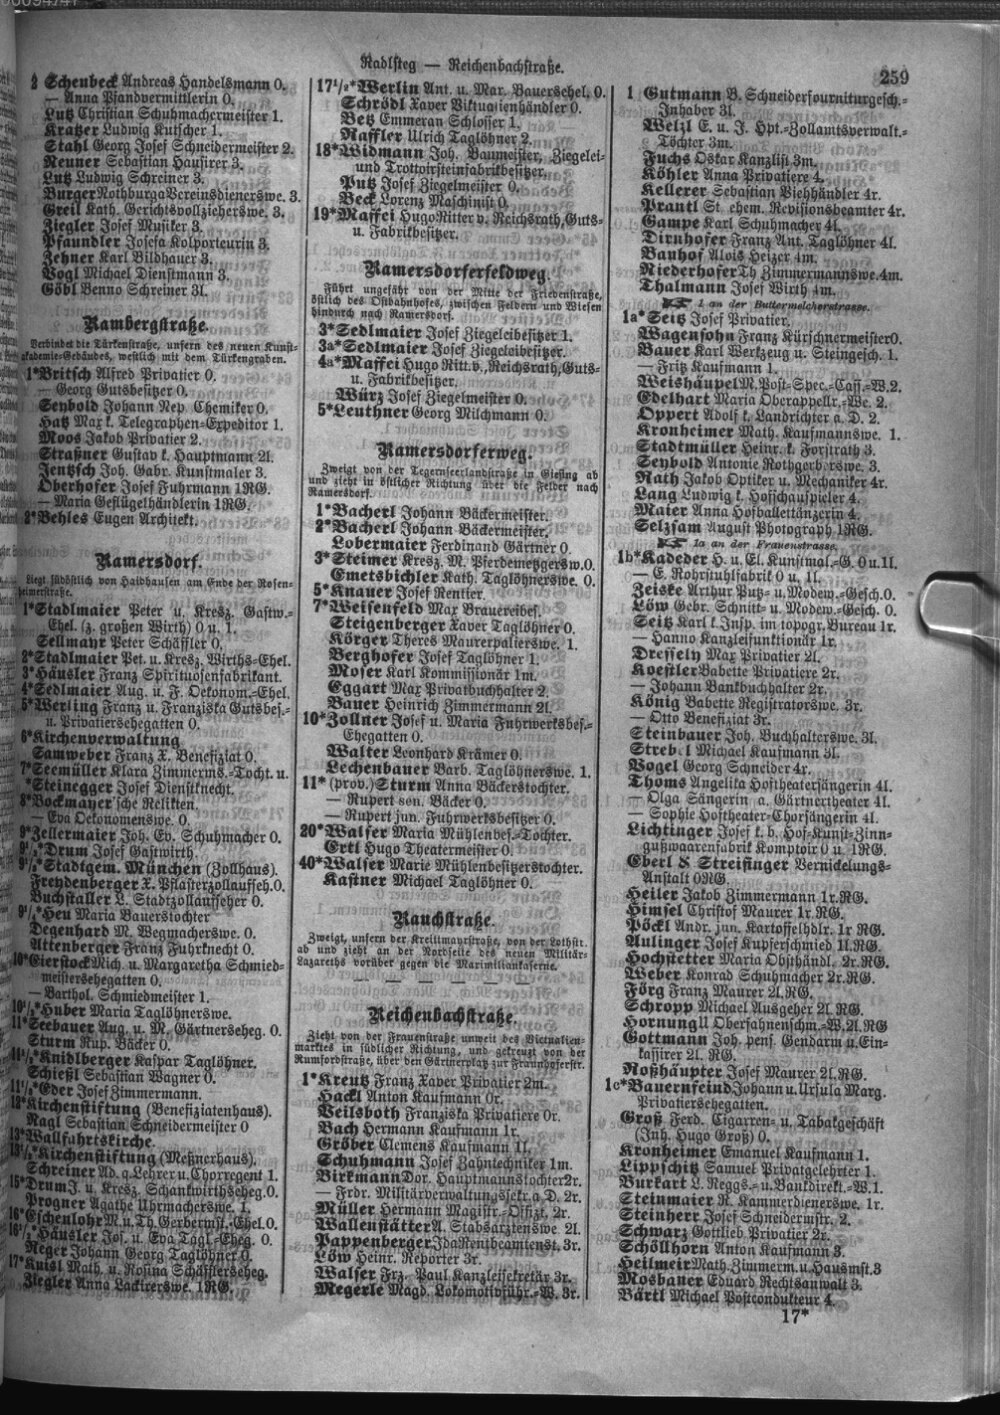 Radlsteg — Reichenbachstraße.
259
2 Schenbeck Andreas Handelsmann 0.
— Anna Pfandvermittlerin 0.
Lutz Christian Schuhmachermeister 1.
Kratzer Ludwig Kutscher 1.
Stahl Georg Josef Schneidermeister 2.
Neuner Sebastian Hausirer 3.
Lutz Ludwig Schreiner 3.
Burger Nothburga Vereinsdienerswe. 3.
Greil Kath. Gerichtsvollzieherswe. 3.
Ziegler Josef Musiker 3.
Pfaundler Josefa Kolporteurin 3.
Zehner Karl Bildhauer 3.
Vogl Michael Dienstmann 3.
Göbl Benno Schreiner 3l.
Rambergstraße.
Verbindet die Türkenstraße, unfern des neuen Kunst-
akademie-Gebäudes, westlich mit dem Türkengraben.
1*Britsch Alfred Privatier 0.
— Georg Gutsbesitzer 0.
Seybold Johann Nep. Chemiker 0.
Hatz Max k. Telegraphen-Expeditor 1.
Moos Jakob Privatier 2.
Straßner Gustav k. Hauptmann 2l.
Jentzsch Joh. Gabr. Kunstmaler 3.
Oberhofer Josef Fuhrmann 1RG.
— Maria Geflügelhändlerin 1RG.
2*Behles Eugen Architekt.
Ramersdorf.
Liegt südöstlich von Haidhausen am Ende der Rosen-
heimerstraße.
1*Stadlmaier Peter u. Kresz. Gastw.-
Ehel. (z. großen Wirth) 0 u. 1.
Sellmayr Peter Schäffler 0.
2*Stadlmaier Pet. u. Kresz. Wirths-Ehel.
3*Häusler Franz Spirituosenfabrikant.
4*Sedlmaier Aug. u. F. Oekonom.-Ehel.
5*Werling Franz u. Franziska Gutsbes.-
u. Privatiersehegatten 0.
6*Kirchenverwaltung
Samweber Franz X. Benefiziat 0.
7*Seemüller Klara Zimmerms.-Tocht. u.
*Steinegger Josef Dienstknecht.
8*Bockmayer'sche Relikten.
— Eva Oekonomenswe. 0.
9*Zellermaier Joh. Ev. Schuhmacher 0.
9½*Drum Josef Gastwirth.
9½*Stadtgem. München (Zollhaus).
Freydenberger X. Pflasterzollaufseh. 0.
Buchstaller L. Stadtzollaufseher 0.
9½*Heu Maria Bauerstochter
Degenhard M. Wegmacherswe. 0.
Attenberger Franz Fuhrknecht 0.
10*Gierstock Mich. u. Margaretha Schmied-
meistersehegatten 0.
— Barthol. Schmiedmeister 1.
10½*Huber Maria Taglöhnerswe.
11*Seebauer Aug. u. M. Gärtnerseheg. 0.
Sturm Rup. Bäcker 0.
11½*Knidlberger Kaspar Taglöhner.
Schießl Sebastian Wagner 0.
11½*Eder Josef Zimmermann.
12*Kirchenstiftung (Benefiziatenhaus).
Nagl Sebastian Schneidermeister 0
13*Wallfahrtskirche.
13½*Kirchenstiftung (Meßnerhaus).
Schreiner Ad. q. Lehrer u. Chorregent 1.
15*Drum J. u. Kresz. Schankwirthseheg. 0.
Progner Agathe Uhrmacherswe. 1.
16*Eschenlohr M. u. Th. Gerbermst.-Ehel. 0.
16½*Häusler Jos. u. Eva Tagl.-Eheg. 0.
Reger Johann Georg Taglöhner 0.
17*Knisl Math. u. Rosina Schäfflerseheg.
Ziegler Anna Lackirerswe. 1RG.
17½*Werlin Ant. u. Mar. Bauersehel. 0.
Schrödl Xaver Viktualienhändler 0.
Betz Emmeran Schlosser 1.
Raffler Ulrich Taglöhner 2.
18*Widmann Joh. Baumeister, Ziegelei-
und Trottoirsteinfabrikbesitzer.
Putz Josef Ziegelmeister 0.
Beck Lorenz Maschinist 0.
19*Maffei Hugo Ritter v. Reichsrath, Guts-
u. Fabrikbesitzer.
Ramersdorferfeldweg.
Führt ungefähr von der Mitte der Friedenstraße,
östlich des Ostbahnhofes, zwischen Feldern und Wiesen
hindurch nach Ramersdorf.
3*Sedlmaier Josef Ziegeleibesitzer 1.
3a*Sedlmaier Josef Ziegeleibesitzer.
4a*Maffei Hugo Ritt. v., Reichsrath, Guts-
u. Fabrikbesitzer.
Würz Josef Ziegelmeister 0.
5*Leuthner Georg Milchmann 0.
Ramersdorferweg.
Zweigt von der Tegernseerlandstraße in Giesing ab
und zieht in östlicher Richtung über die Felder nach
Ramersdorf.
1*Bacherl Johann Bäckermeister.
2*Bacherl Johann Bäckermeister.
Lobermaier Ferdinand Gärtner 0.
3*Steimer Kresz. M. Pferdemetzgersw. 0.
Emetsbichler Kath. Taglöhnerswe. 0.
5*Knauer Josef Rentier.
7*Weisenfeld Max Brauereibes.
Steigenberger Xaver Taglöhner 0.
Körger Theres Maurerpalierswe. 1.
Berghofer Josef Taglöhner 1.
Moser Karl Kommissionär 1m.
Eggart Max Privatbuchhalter 2.
Bauer Heinrich Zimmermann 2l.
10*Zollner Josef u. Maria Fuhrwerksbes.-
Ehegatten 0.
Walter Leonhard Krämer 0.
Lechenbauer Barb. Taglöhnerswe. 1.
11* (prov.) Sturm Anna Bäckerstochter.
— Rupert sen. Bäcker 0.
— Rupert jun. Fuhrwerksbesitzer 0.
20*Walser Maria Mühlenbes.-Tochter.
Ertl Hugo Theatermeister 0.
40*Walser Marie Mühlenbesitzerstochter.
Kastner Michael Taglöhner 0.
Rauchstraße.
Zweigt, unfern der Kreillmayrstraße, von der Lothstr.
ab und zieht an der Nordseite des neuen Militär-
Lazareths vorüber gegen die Maximilianskaserne.
— — — — —
Reichenbachstraße.
Zieht von der Frauenstraße unweit des Victualien-
marktes in südlicher Richtung, und gekreuzt von der
Rumfordstraße, über den Gärtnerplatz zur Fraunhoferstr.
1*Kreutz Franz Xaver Privatier 2m.
Hackl Anton Kaufmann 0r.
Veilsboth Franziska Privatiere 0r.
Bach Hermann Kaufmann 1r.
Gröber Clemens Kaufmann 1l.
Schuhmann Josef Zahntechniker 1m.
Birkmann Dor. Hauptmannstochter 2r.
— Frdr. Militärverwaltungssekr. a. D. 2r.
Müller Hermann Magistr.-Offizt. 2r.
Wallenstätter A. Stabsarztenswe 2l.
Pappenberger Ida Rentbeamtenst. 3r.
Löw Heinr. Reporter 3r.
Walser Frz. Paul Kanzleisekretär 3r.
Megerle Magd. Lokomotivführ.-W. 3r.
1 Gutmann B. Schneiderfourniturgesch.-
Inhaber 3l.
Welzl E. u. J. Hpt.-Zollamtsverwalt.-
Töchter 3m.
Fuchs Oskar Kanzlist 3m.
Köhler Anna Privatiere 4.
Kellerer Sebastian Viehhändler 4r.
Prantl St. ehem. Revisionsbeamter 4r.
Gampe Karl Schuhmacher 4l.
Dirnhofer Franz Ant. Taglöhner 4l.
Bauhof Alois Heizer 4m.
Niederhofer Th Zimmermannswe. 4m.
Thalmann Josef Wirth 4m.
☛ 1 an der Buttermelcherstrasse.
1a*Seitz Josef Privatier.
Wagensohn Franz Kürschnermeister 0.
Bauer Karl Werkzeug u. Steingesch. 1.
— Fritz Kaufmann 1.
Weishäupel M. Post-Spec.-Cass.-W. 2.
Edelhart Maria Oberappellr.-We. 2.
Oppert Adolf k. Landrichter a. D. 2.
Kronheimer Math. Kaufmannswe. 1.
Stadtmüller Heinr. k. Forstrath 3.
Seybold Antonie Rothgerberswe. 3.
Rath Jakob Optiker u. Mechaniker 4r.
Lang Ludwig k. Hofschauspieler 4.
Maier Anna Hofballettänzerin 4.
Selzsam August Photograph 1RG.
☛ 1a an der Frauenstrasse.
1b*Kadeder H. u. El. Kunstmal.-G. 0 u. 1l.
— E. Rohrstuhlfabrik 0 u. 1l.
Zeiske Arthur Putz- u. Modew.-Gesch. 0.
Löw Gebr. Schnitt- u. Modew.-Gesch. 0.
Seitz Karl k. Insp. im topogr. Bureau 1r.
— Hanno Kanzleifunktionär 1r.
Dressely Max Privatier 2l.
Koestler Babette Privatiere 2r.
— Johann Bankbuchhalter 2r.
König Babette Registratorswe. 3r.
— Otto Benefiziat 3r.
Steinbauer Joh. Buchhalterswe. 3l.
Strebel Michael Kaufmann 3l.
Vogel Georg Schneider 4r.
Thoms Angelika Hoftheatersängerin 4l.
— Olga Sängerin a. Gärtnertheater 4l.
— Sophie Hoftheater-Chorsängerin 4l.
Lichtinger Josef k. b. Hof-Kunst-Zinn-
gußwaarenfabrik Komptoir 0 u. 1RG.
Eberl & Streifinger Vernickelungs-
Anstalt 0RG.
Heiler Jakob Zimmermann 1r.RG.
Himsel Christof Maurer 1r.RG.
Pöckl Andr. jun. Kartoffelhdlr. 1r RG.
Aulinger Josef Kupferschmied 1l.RG.
Hochstetter Maria Obsthändl. 2r.RG.
Weber Konrad Schuhmacher 2r.RG.
Förg Franz Maurer 2l.RG.
Schropp Michael Ausgeher 2l. RG.
Hornung U Obersahnenschm.-W. 2l.RG
Gottmann Joh. pens. Gendarm u. Ein-
kassirer 2l. RG.
Roßhäupter Josef Maurer 2l.RG.
1c*Bauernfeind Johann u. Ursula Marg.
Privatiersehegatten.
Groß Ferd. Cigarren- u. Tabakgeschäft
(Inh. Hugo Groß) 0.
Kronheimer Emanuel Kaufmann 1.
Lippschitz Samuel Privatgelehrter 1.
Burkart L. Reggs.- u. Bankdirekt.-W. 1.
Steinmaier R. Kammerdienerswe. 1r.
Steinherr Josef Schneidermstr. 2.
Schwarz Gottlieb Privatier 2r.
Schöllhorn Anton Kaufmann 3.
Heilmeir Math. Zimmerm. u. Hausmst. 3
Mosbauer Eduard Rechtsanwalt 3.
Bärtl Michael Postcondukteur 4.
17*